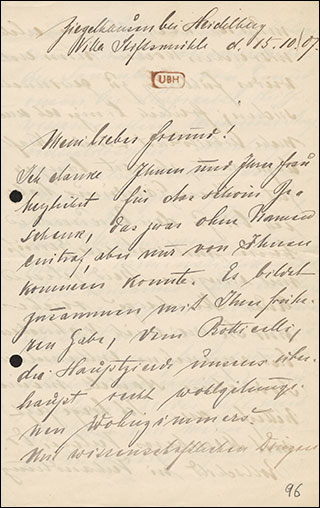 Ziegelhausen bei Heidelberg
Villa Stiftsmühle d. 15.10/07.
UBH
Mein lieber Freund!
Ich danke Ihnen und Ihrer Frau
herzlichst für das schöne Ge-
schenk, das zwar ohne Namen
eintraf, aber nur von Ihnen
kommen konnte. Es bildet
zusammen mit Ihrer frühe-
ren Gabe, dem Botticelli,
die Hauptzierde unseres über-
haupt recht wohlgelunge-
nen Wohnzimmers.
Von wissenschaftlichen Dingen
96